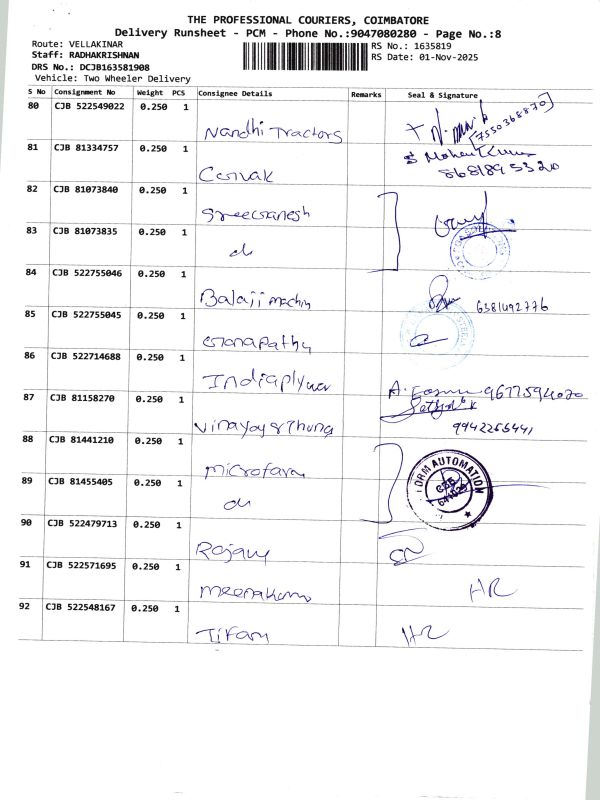 THE PROFESSIONAL COURIERS, COIMBATORE
Delivery Runsheet - PCM - Phone No.:9047080280 - Page No.:8
Route: VELLAKINAR RS No.: 1635819
Staff: RADHAKRISHNAN RS Date: 01-Nov-2025
DRS No.: DCJB163581908
Vehicle: Two Wheeler Delivery
S No Consignment No Weight PCS Consignee Details Remarks Seal & Signature
80 CJB 522549022 0.250 1
Nandhi Tractors [7550368870]
81 CJB 81334757 0.250 1
8681895320
82 CJB 81073840 0.250 1
83 CJB 81073835 0.250 1
do
84 CJB 522755046 0.250 1
Balaji 6381492776
85 CJB 522755045 0.250 1
Ganapathy
86 CJB 522714688 0.250 1
87 CJB 81158270 0.250 1
88 CJB 81441210 0.250 1
Microfarm FORM AUTOMATION
89 CJB 81455405 0.250 1
do
90 CJB 522479713 0.250 1
91 CJB 522571695 0.250 1
HR
92 CJB 522548167 0.250 1
HR